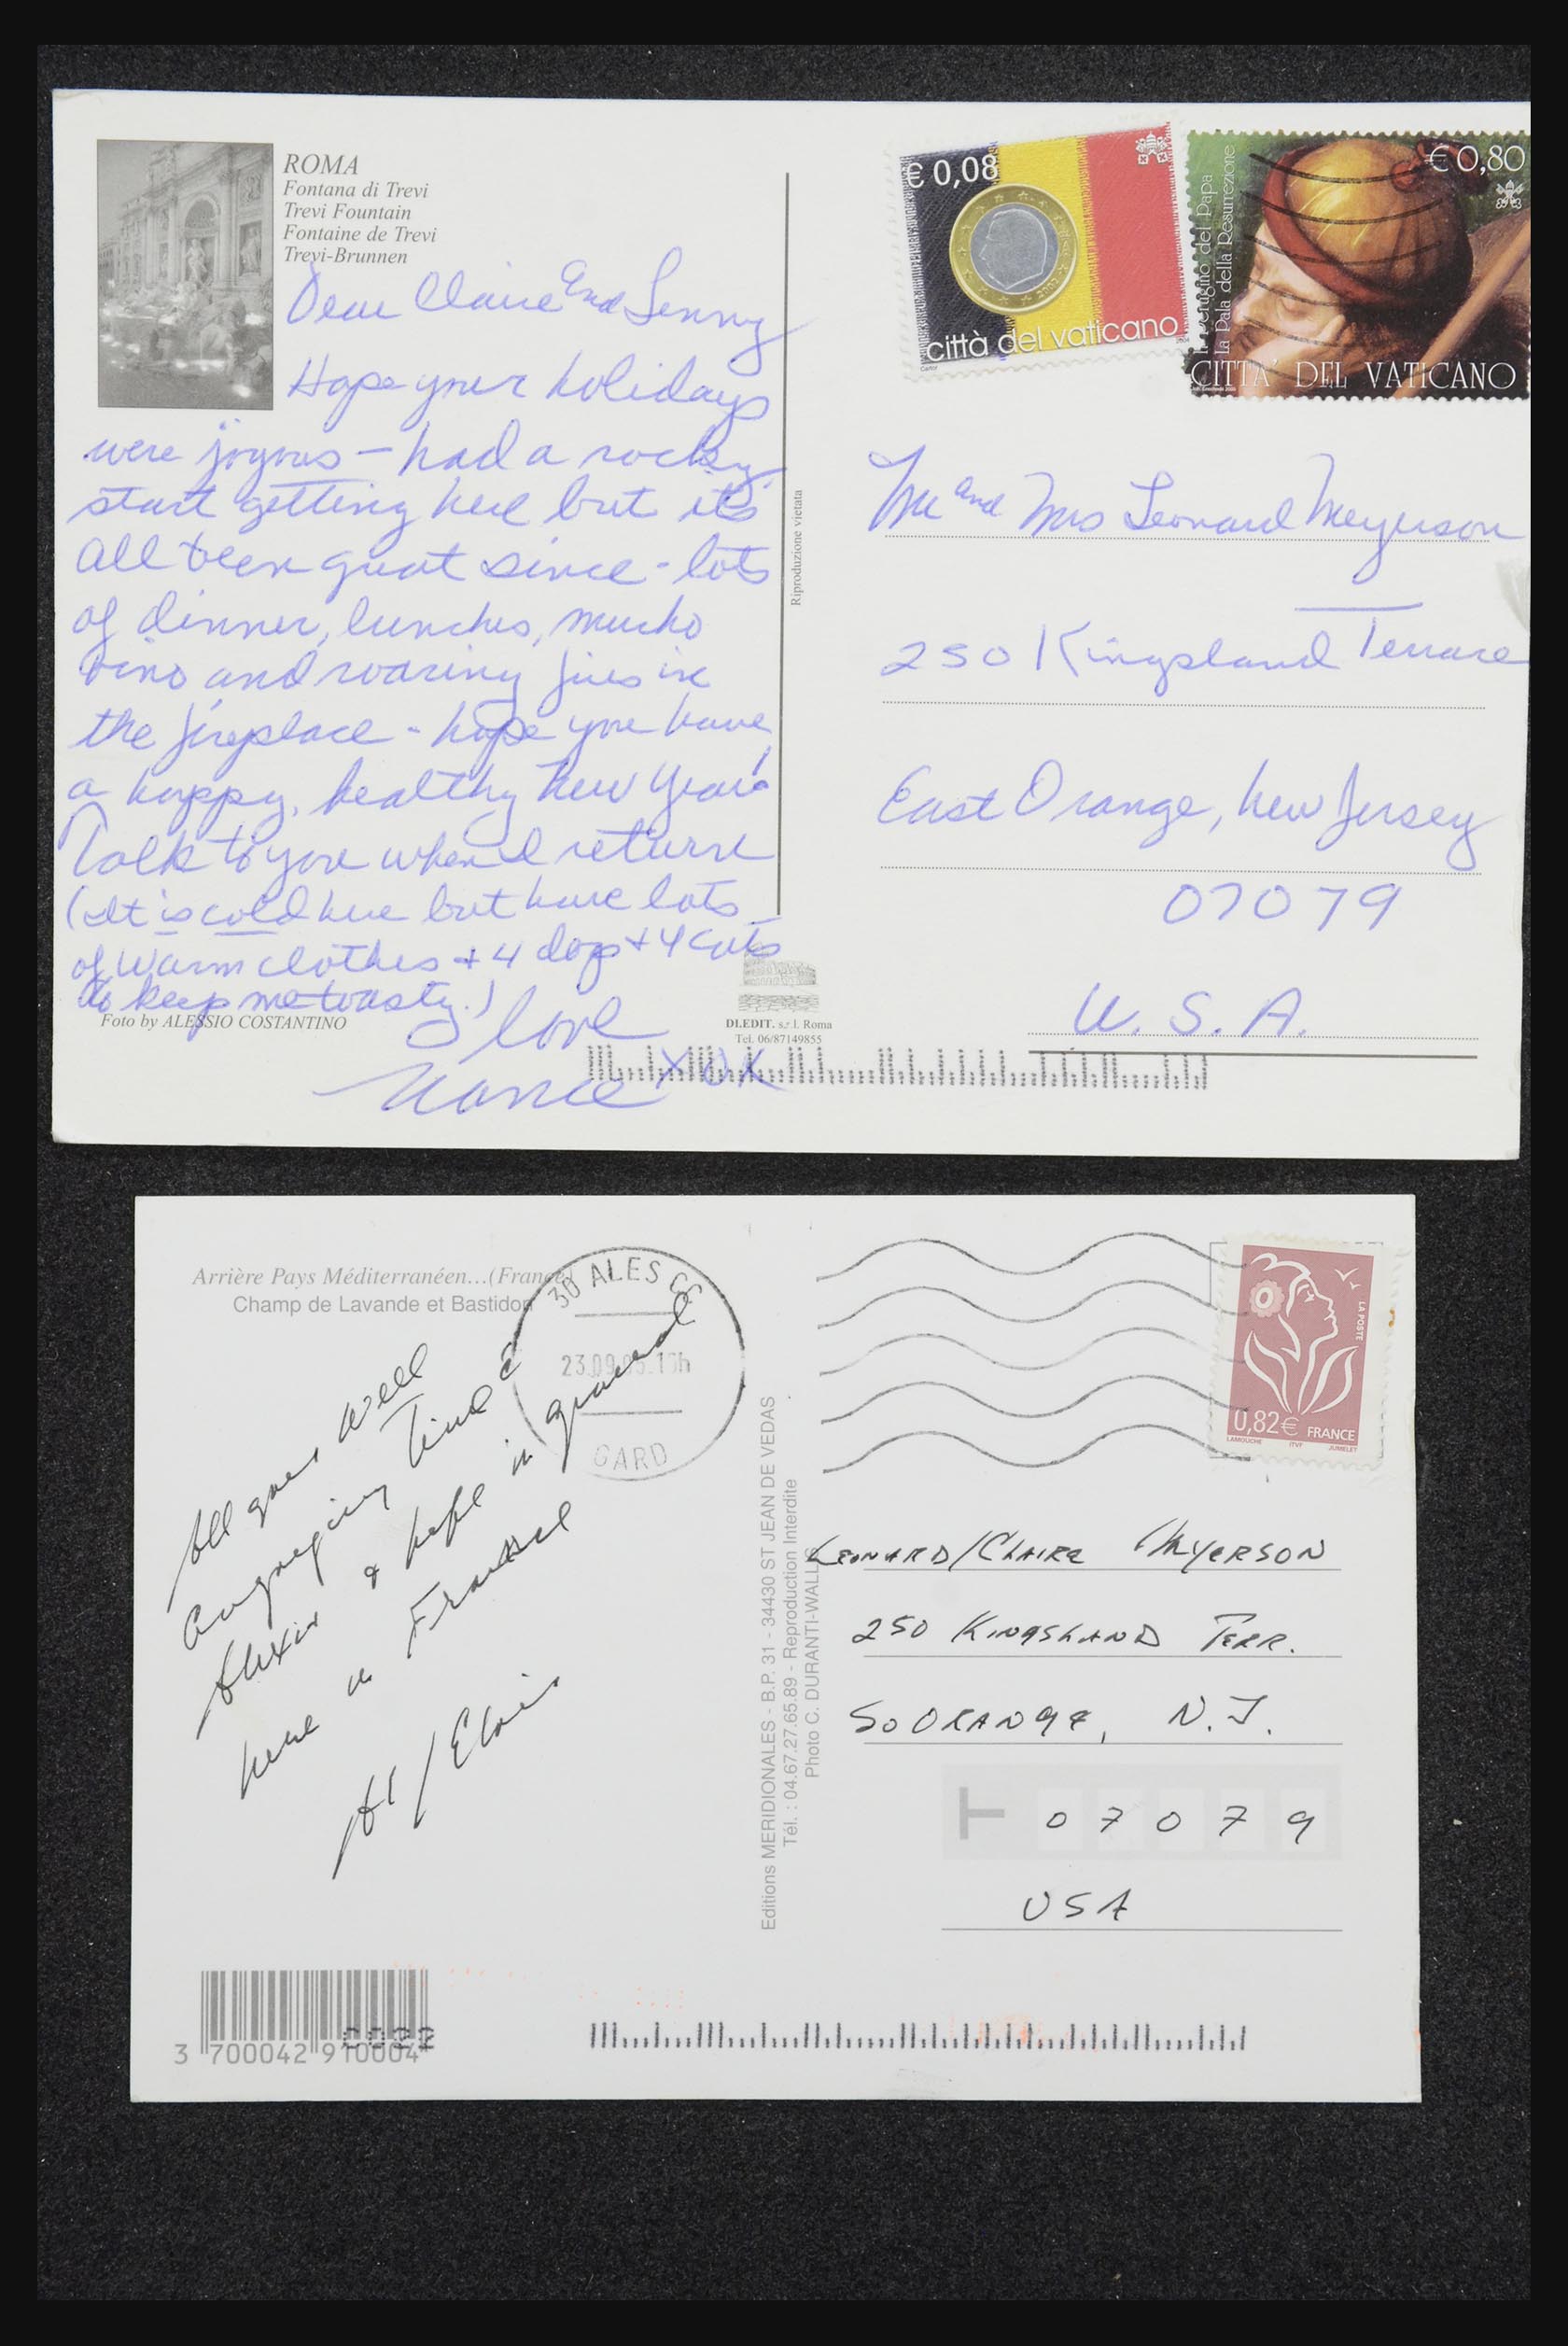 ROMA
Fontana di Trevi
Trevi Fountain
Fontaine de Trevi
Trevi-Brunnen
Dear Claire and Lenny
Hope your holidays
were joyous — had a rocky
start getting here but it's
all been great since - lots
of dinner, lunches, mucho
vino and roaring fires in
the fireplace - hope you have
a happy, healthy New Year!
Talk to you when I return
(It is cold here but have lots
of warm clothes + 4 dogs + 4 cats
to keep me toasty.)
Love
XOX
Foto by ALESSIO COSTANTINO
DLEDIT. s.r l. Roma
Tel. 06/87149855
Riproduzione vietata
€ 0,08
città del vaticano
Cartor
€ 0,80
Il Perugino del Papa
La Pala della Resurrezione
CITTA' DEL VATICANO
Mr and Mrs Leonard Meyerson
250 Kingsland Terrace
East Orange, New Jersey
07079
U. S. A.
Arrière Pays Méditerranéen...(France)
Champ de Lavande et Bastidon
30 ALES CC
23.09.05
GARD
All goes well
enjoying time c
Alexis & hope in general
here in France
Al/Elois
Editions MERIDIONALES - B.P. 31 - 34430 ST JEAN DE VEDAS
Tél. : 04.67.27.65.89 - Reproduction Interdite
Photo C. DURANTI-WALLIS
LA POSTE
0,82€ FRANCE
LAMOUCHE ITVF JUMELET
LEONARD/CLAIRE MEYERSON
250 KINGSLAND TERR.
SO ORANGE, N.J.
T 07079
USA
3 700042 910004
0022